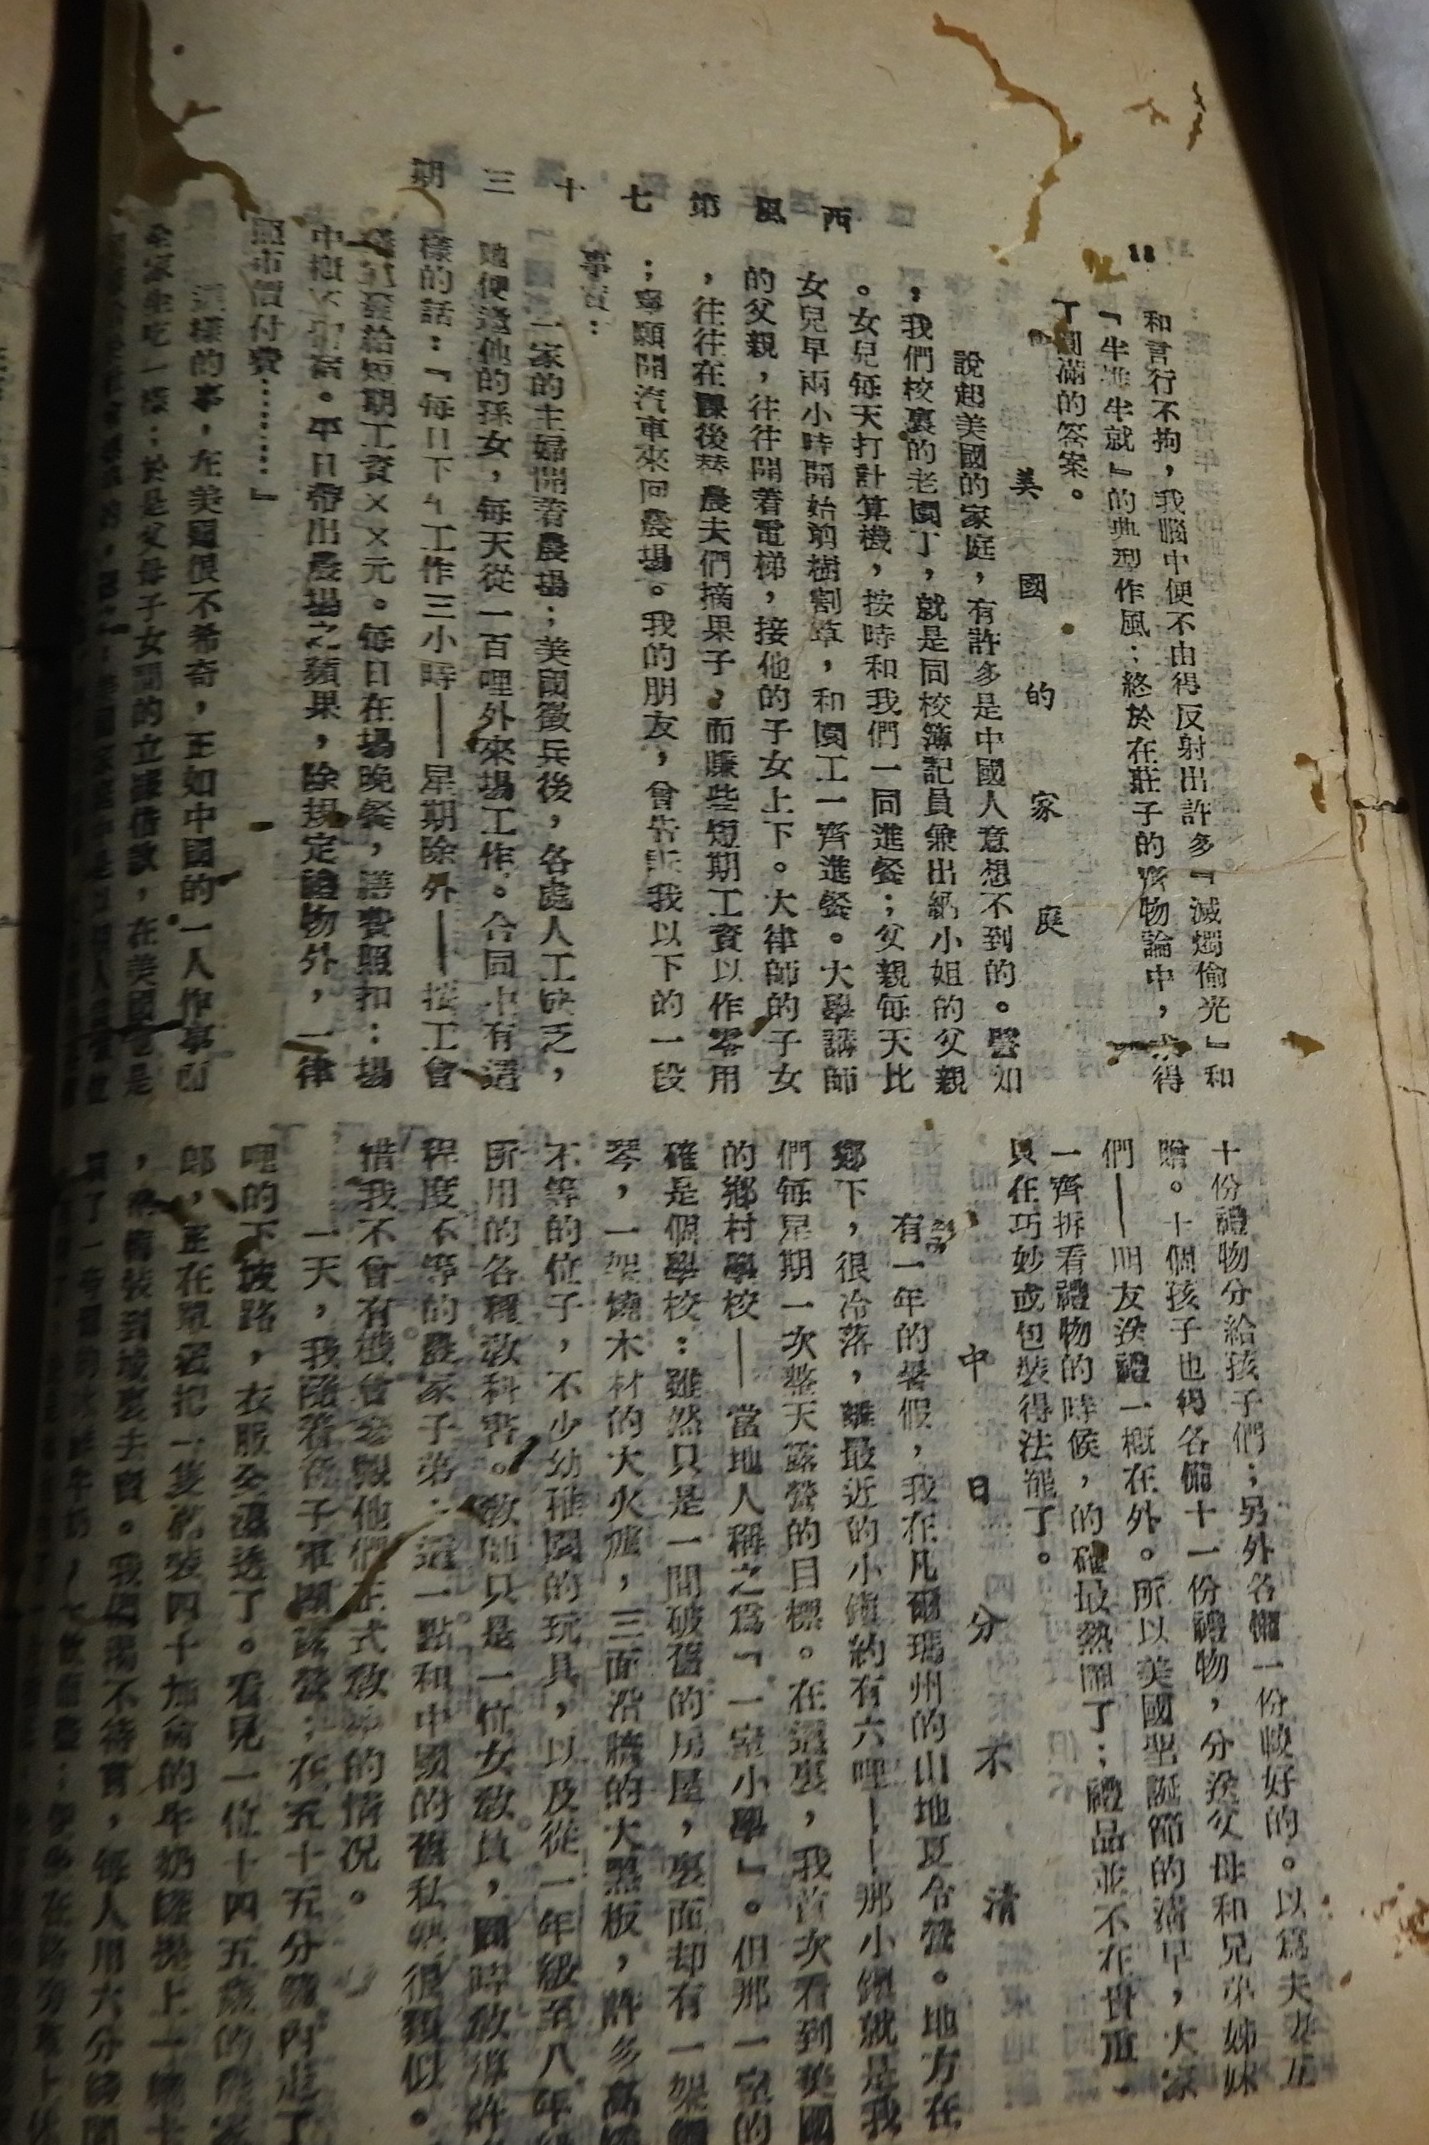 西風第七十三期
18
和言行不拘，我腦中便不由得反射出許多『滅燭偷光』和
『牛進牛就』的典型作風；終於在莊子的齊物論中，求得
了圓滿的答案。
美國的家庭
說起美國的家庭，有許多是中國人意想不到的。譬如
，我們校裏的老園丁，就是同校簿記員兼出納小姐的父親
。女兒每天打計算機，按時和我們一同進餐；父親每天比
女兒早兩小時開始剪樹割草，和園工一齊進餐。大學講師
的父親，往往開着電梯，接他的子女上下。大律師的子女
，往往在課後替農夫們摘果子，而賺些短期工資以作零用
；寧願開汽車來回農場。我的朋友，曾告訴我以下的一段
事實：
一家的主婦開着農場；美國徵兵後，各處人工缺乏，
她便邀他的孫女，每天從一百哩外來場工作。合同中有這
樣的話：『每日下午工作三小時——星期除外——按工會
發給短期工資××元。每日在場晚餐，膳費照扣：場
中概不留宿。平日帶出農場之蘋果，除規定禮物外，一律
照市價付費………』
這樣的事，在美國很不希奇，正如中國的一人作事而
全家坐吃一樣；於是父母子女間的立據借款，在美國也是
十份禮物分給孩子們；另外各備一份較好的。以爲夫妻互
贈。十個孩子也得各備十一份禮物，分送父母和兄弟姊妹
們——朋友送禮一概在外。所以美國聖誕節的清早，大家
一齊拆看禮物的時候，的確最熱鬧了；禮品並不在貴重、
只在巧妙或包裝得法罷了。
中日分不清
有一年的暑假，我在凡爾瑪州的山地夏令營。地方在
鄉下，很冷落，離最近的小鎮約有六哩——那小鎮就是我
們每星期一次整天露營的目標。在這裏，我首次看到美國
的鄉村學校——當地人稱之爲『一室小學』。但那一室的
確是個學校：雖然只是一間破舊的房屋，裏面却有一架鋼
琴，一架燒木材的大火爐，三面沿牆的大黑板，許多高矮
不等的位子，不少幼稚園的玩具，以及從一年級至八年級
所用的各種教科書。教師只是一位女教員，同時教導許多
程度不等的農家子弟：這一點和中國的舊私塾很類似。
惜我不會有機會參觀他們正式教學的情況。
一天，我隨着孩子軍團露營；在五十五分鐘內走了
哩的下坡路，衣服全濕透了。看見一位十四五歲的農家
郎，正在單獨把一隻舊裝四十加侖的牛奶罐搬上一輛卡
，預備裝到城裏去賣。我們渴不待言，每人用六分錢